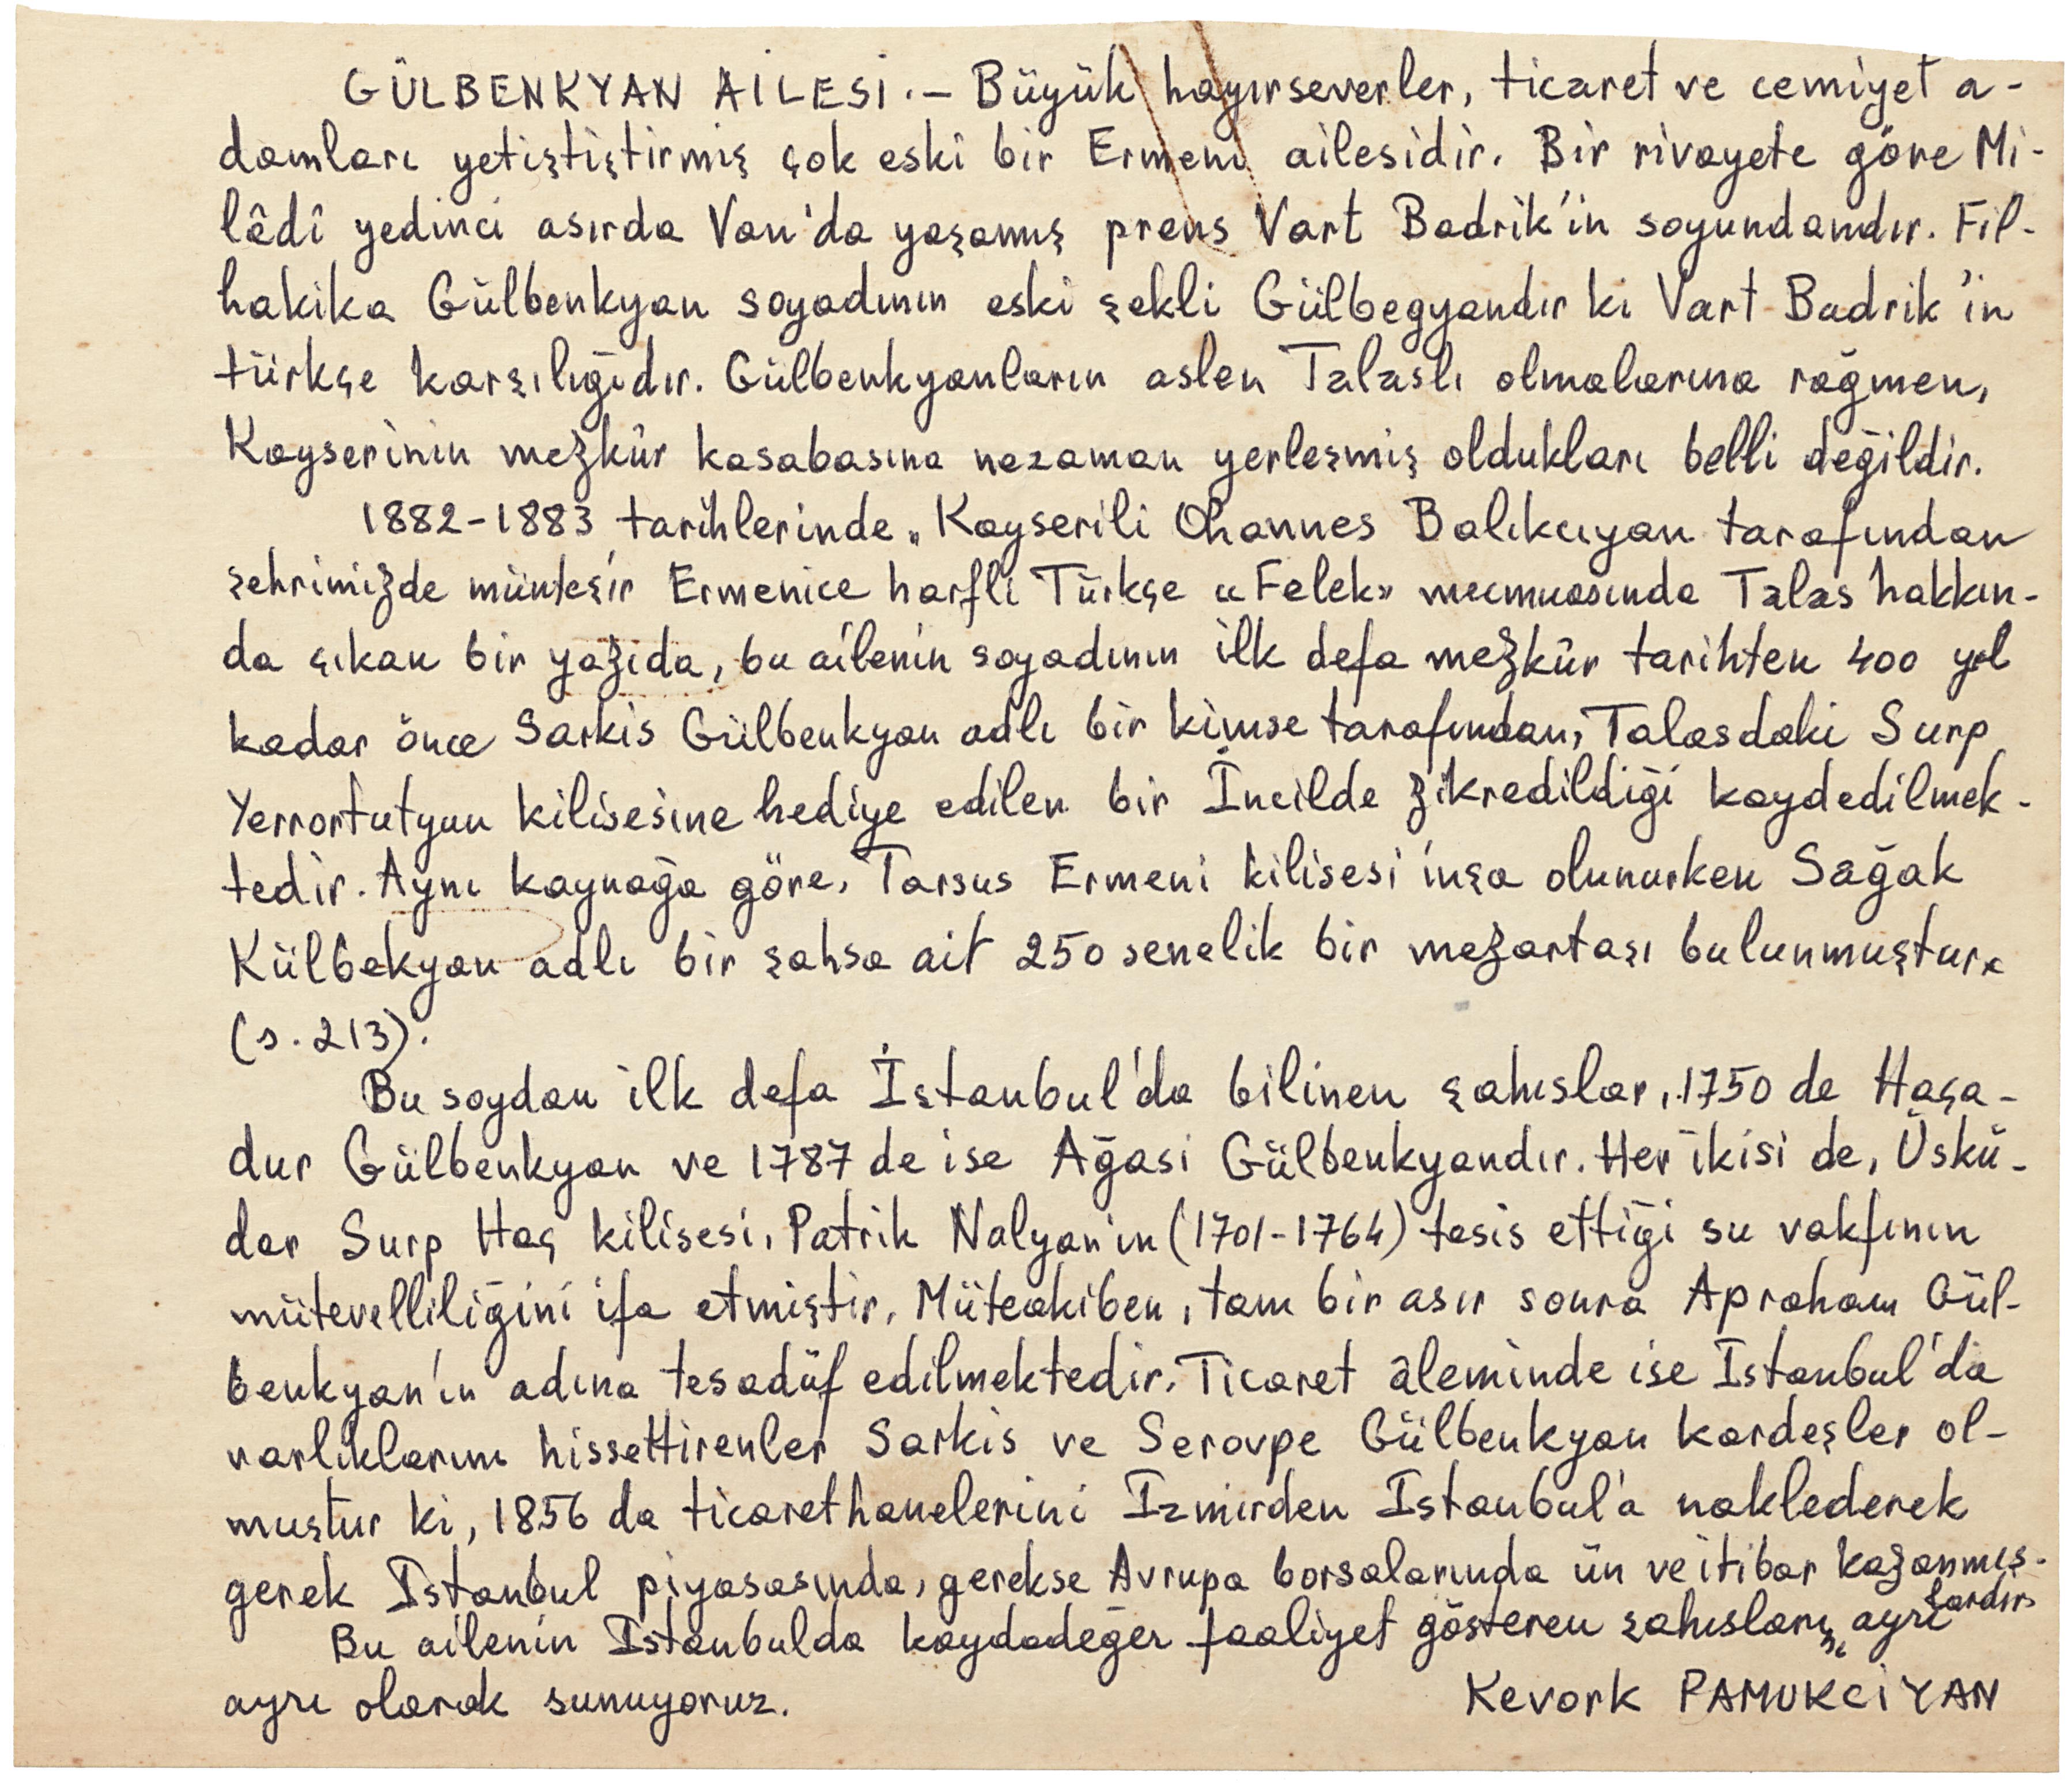 GÜLBENKYAN AİLESİ.– Büyük hayırseverler, ticaret ve cemiyet a-
damları yetiştiştirmiş çok eski bir Ermeni ailesidir. Bir rivayete göre Mi-
lâdî yedinci asırda Van'da yaşamış prens Vart Badrik'in soyundandır. Fil-
hakika Gülbenkyan soyadının eski şekli Gülbegyandır ki Vart Badrik'in
türkçe karşılığıdır. Gülbenkyanların aslen Talaslı olmalarına rağmen,
Kayserinin mezkûr kasabasına nezaman yerleşmiş oldukları belli değildir.
1882-1883 tarihlerinde „Kayserili Ohannes Balıkcıyan tarafından
şehrimizde münteşir Ermenice harfli Türkçe «Felek» mecmuasında Talas hakkın-
da çıkan bir yazıda, bu ailenin soyadının ilk defa mezkûr tarihten 400 yıl
kadar önce Sarkis Gülbenkyan adlı bir kimse tarafından, Talasdaki Surp
Yerrortutyun kilisesine hediye edilen bir İncilde zikredildiği kaydedilmek-
tedir. Aynı kaynağa göre, Tarsus Ermeni kilisesi inşa olunurken Sağak
Külbekyan adlı bir şahsa ait 250 senelik bir mezartaşı bulunmuştur
(s. 213).
Bu soydan ilk defa İstanbul'da bilinen şahıslar, 1750 de Haça-
dur Gülbenkyan ve 1787 de ise Ağasi Gülbenkyandır. Her ikisi de, Üskü-
dar Surp Haç kilisesi, Patrik Nalyan'ın (1701-1764) tesis ettiği su vakfının
mütevelliliğini ifa etmiştir. Müteakiben, tam bir asır sonra Apraham Gül-
benkyan'ın adına tesadüf edilmektedir. Ticaret âleminde ise Istanbul'da
varlıklarını hissettirenler Sarkis ve Serovpe Gülbenkyan kardeşler ol-
muştur ki, 1856 da ticarethanelerini Izmirden Istanbul'a naklederek
gerek Istanbul piyasasında, gerekse Avrupa borsalarında ün ve itibar kazanmış-
lardır.
Bu ailenin Istanbulda kaydadeğer faaliyet gösteren şahısları, ayrı
ayrı olarak sunuyoruz.
Kevork PAMUKCİYAN